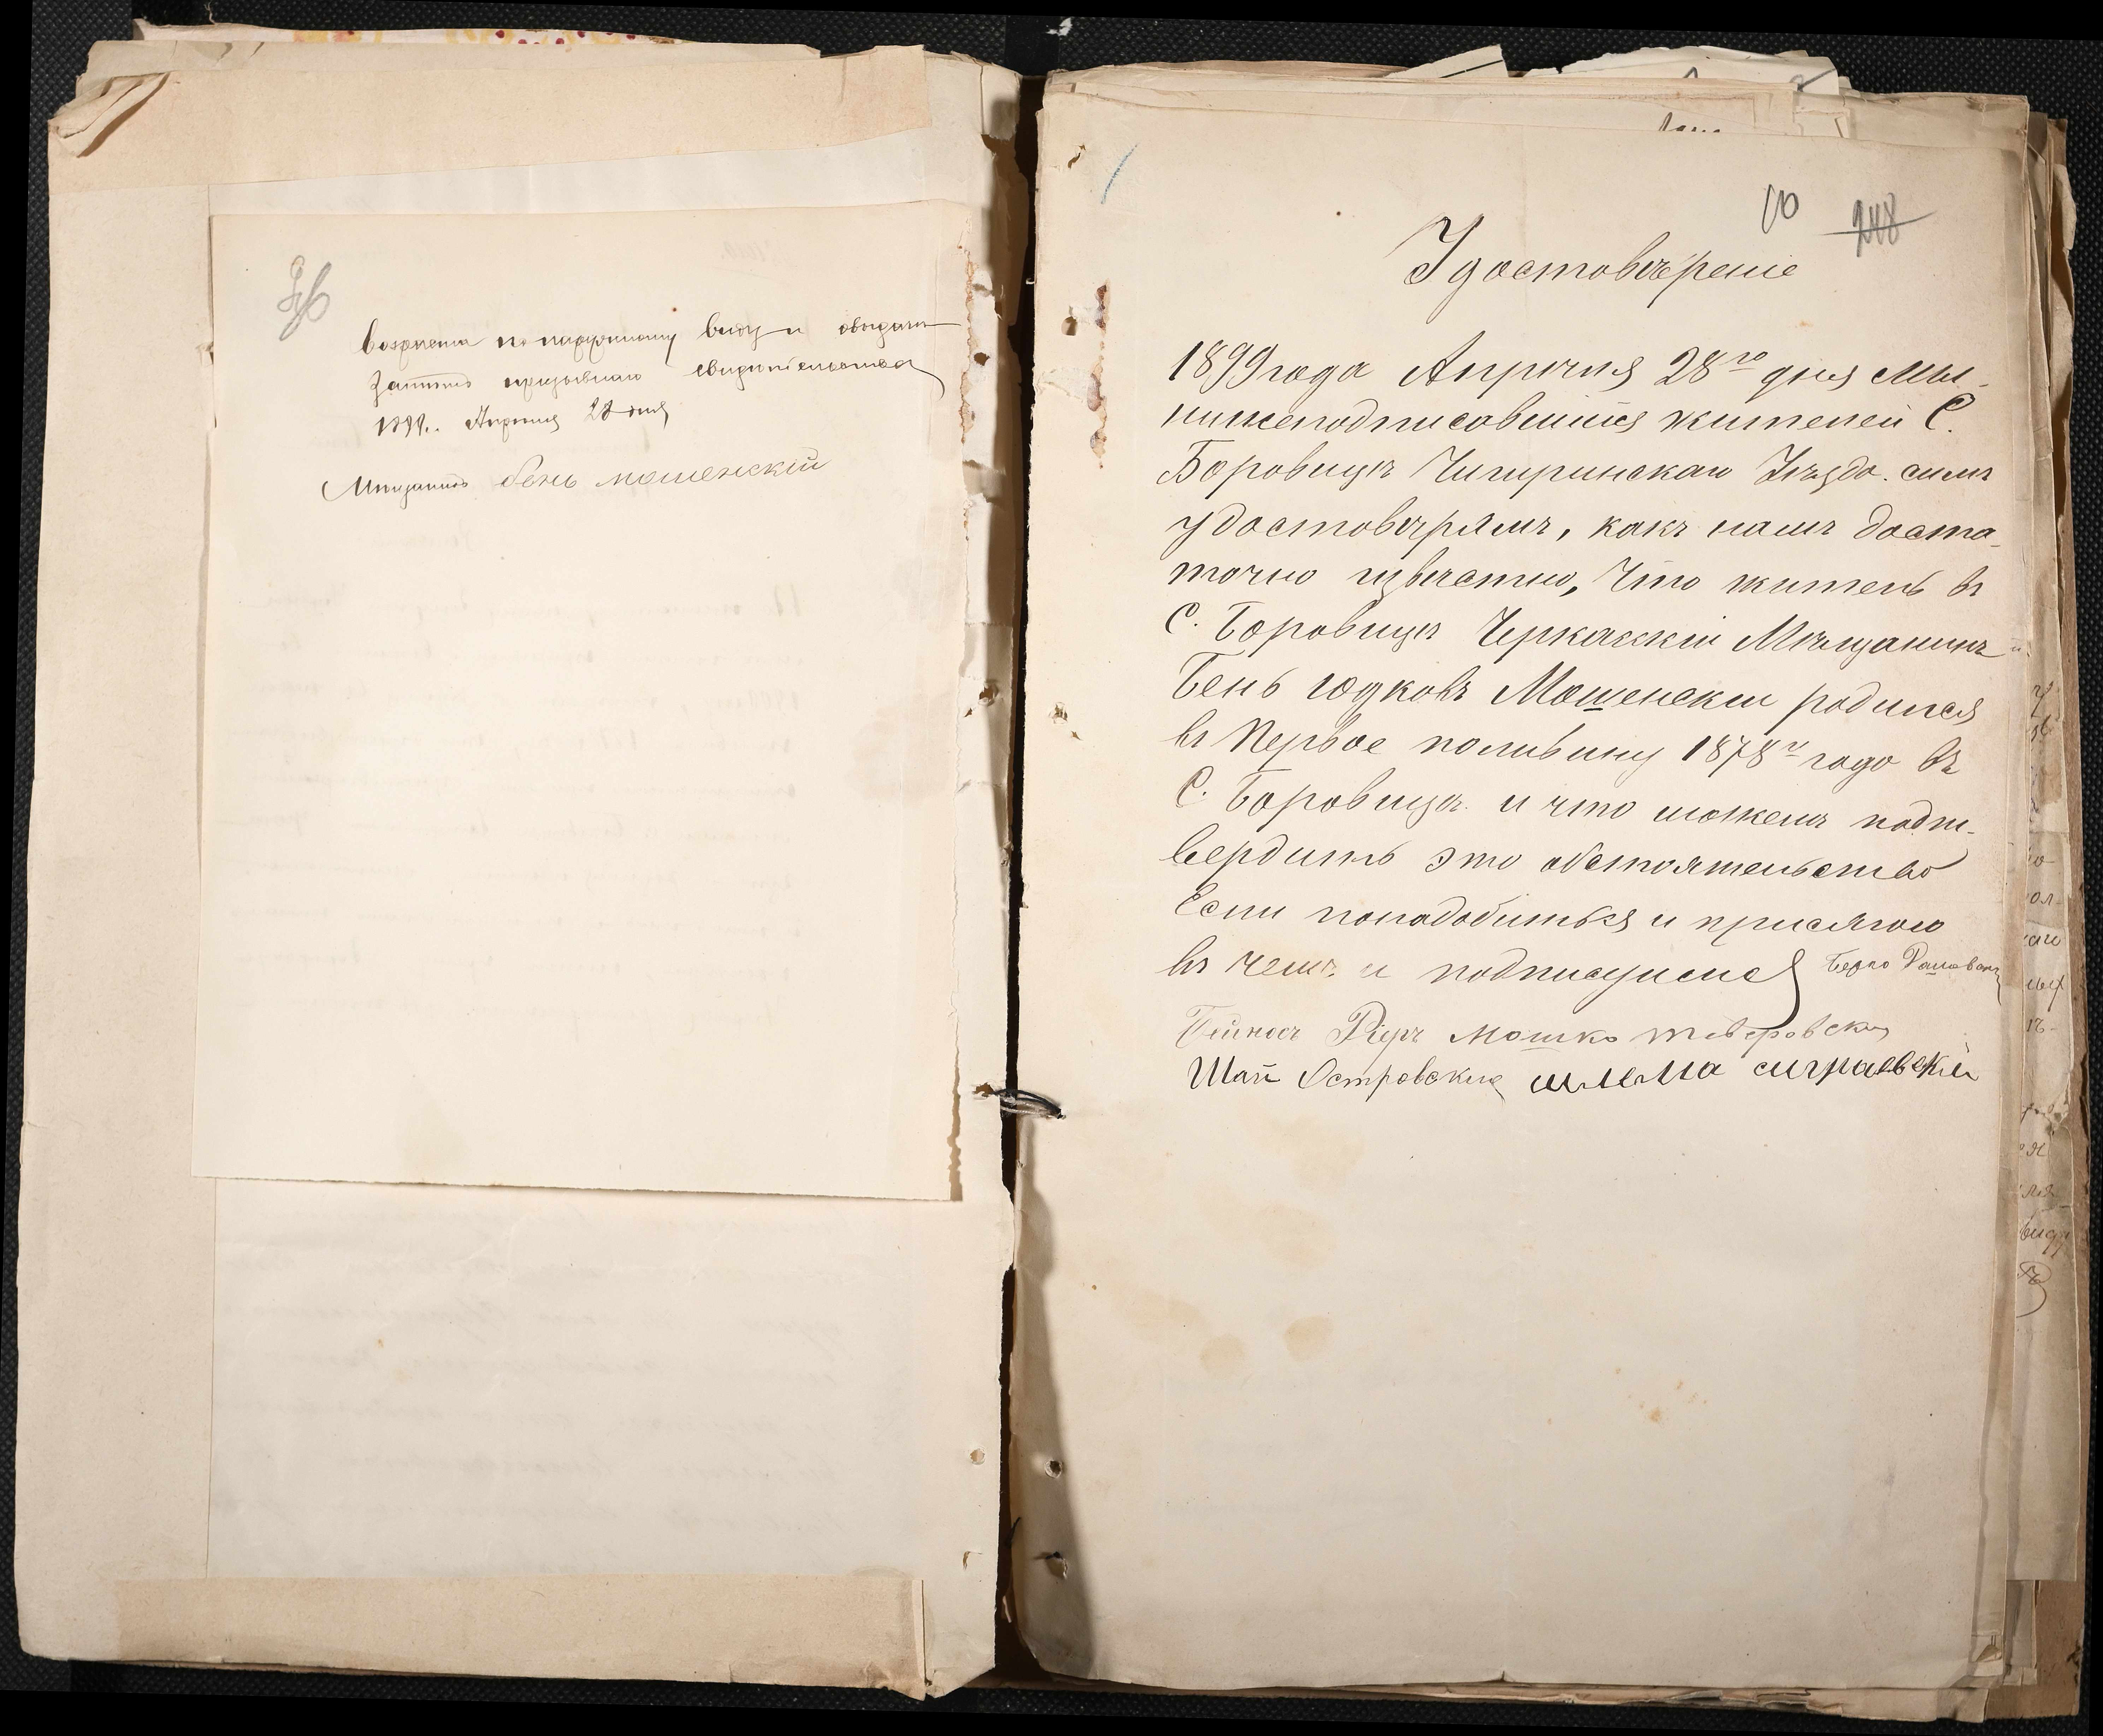 возраста по наружному виду и о выдачи
затѣмъ призывнаго свидѣтельства
1899.. Апрѣля 28 дня
Мѣщанинъ бень мошенскій
10 248
Удостовѣреніе
1899 года Апрѣля 28го дня Мы
нижеподписавшійся жителей С.
Боровицы Чигиринскаго Уѣзда. симъ
удостовѣряемъ, какъ намъ доста-
точно извѣстно, Что житель въ
С. Боровицѣ Черкасскій Мѣщанинъ
Бень Юдковъ Мошенскій родился
въ Первое половину 1878го года въ
С. Боровицѣ и что можемъ подт-
вердить это обстоятельство
Если понадобиться и присягою
въ чемъ и подписуимся Берко
Мошко
Шая Островскій шлема сиграевскій